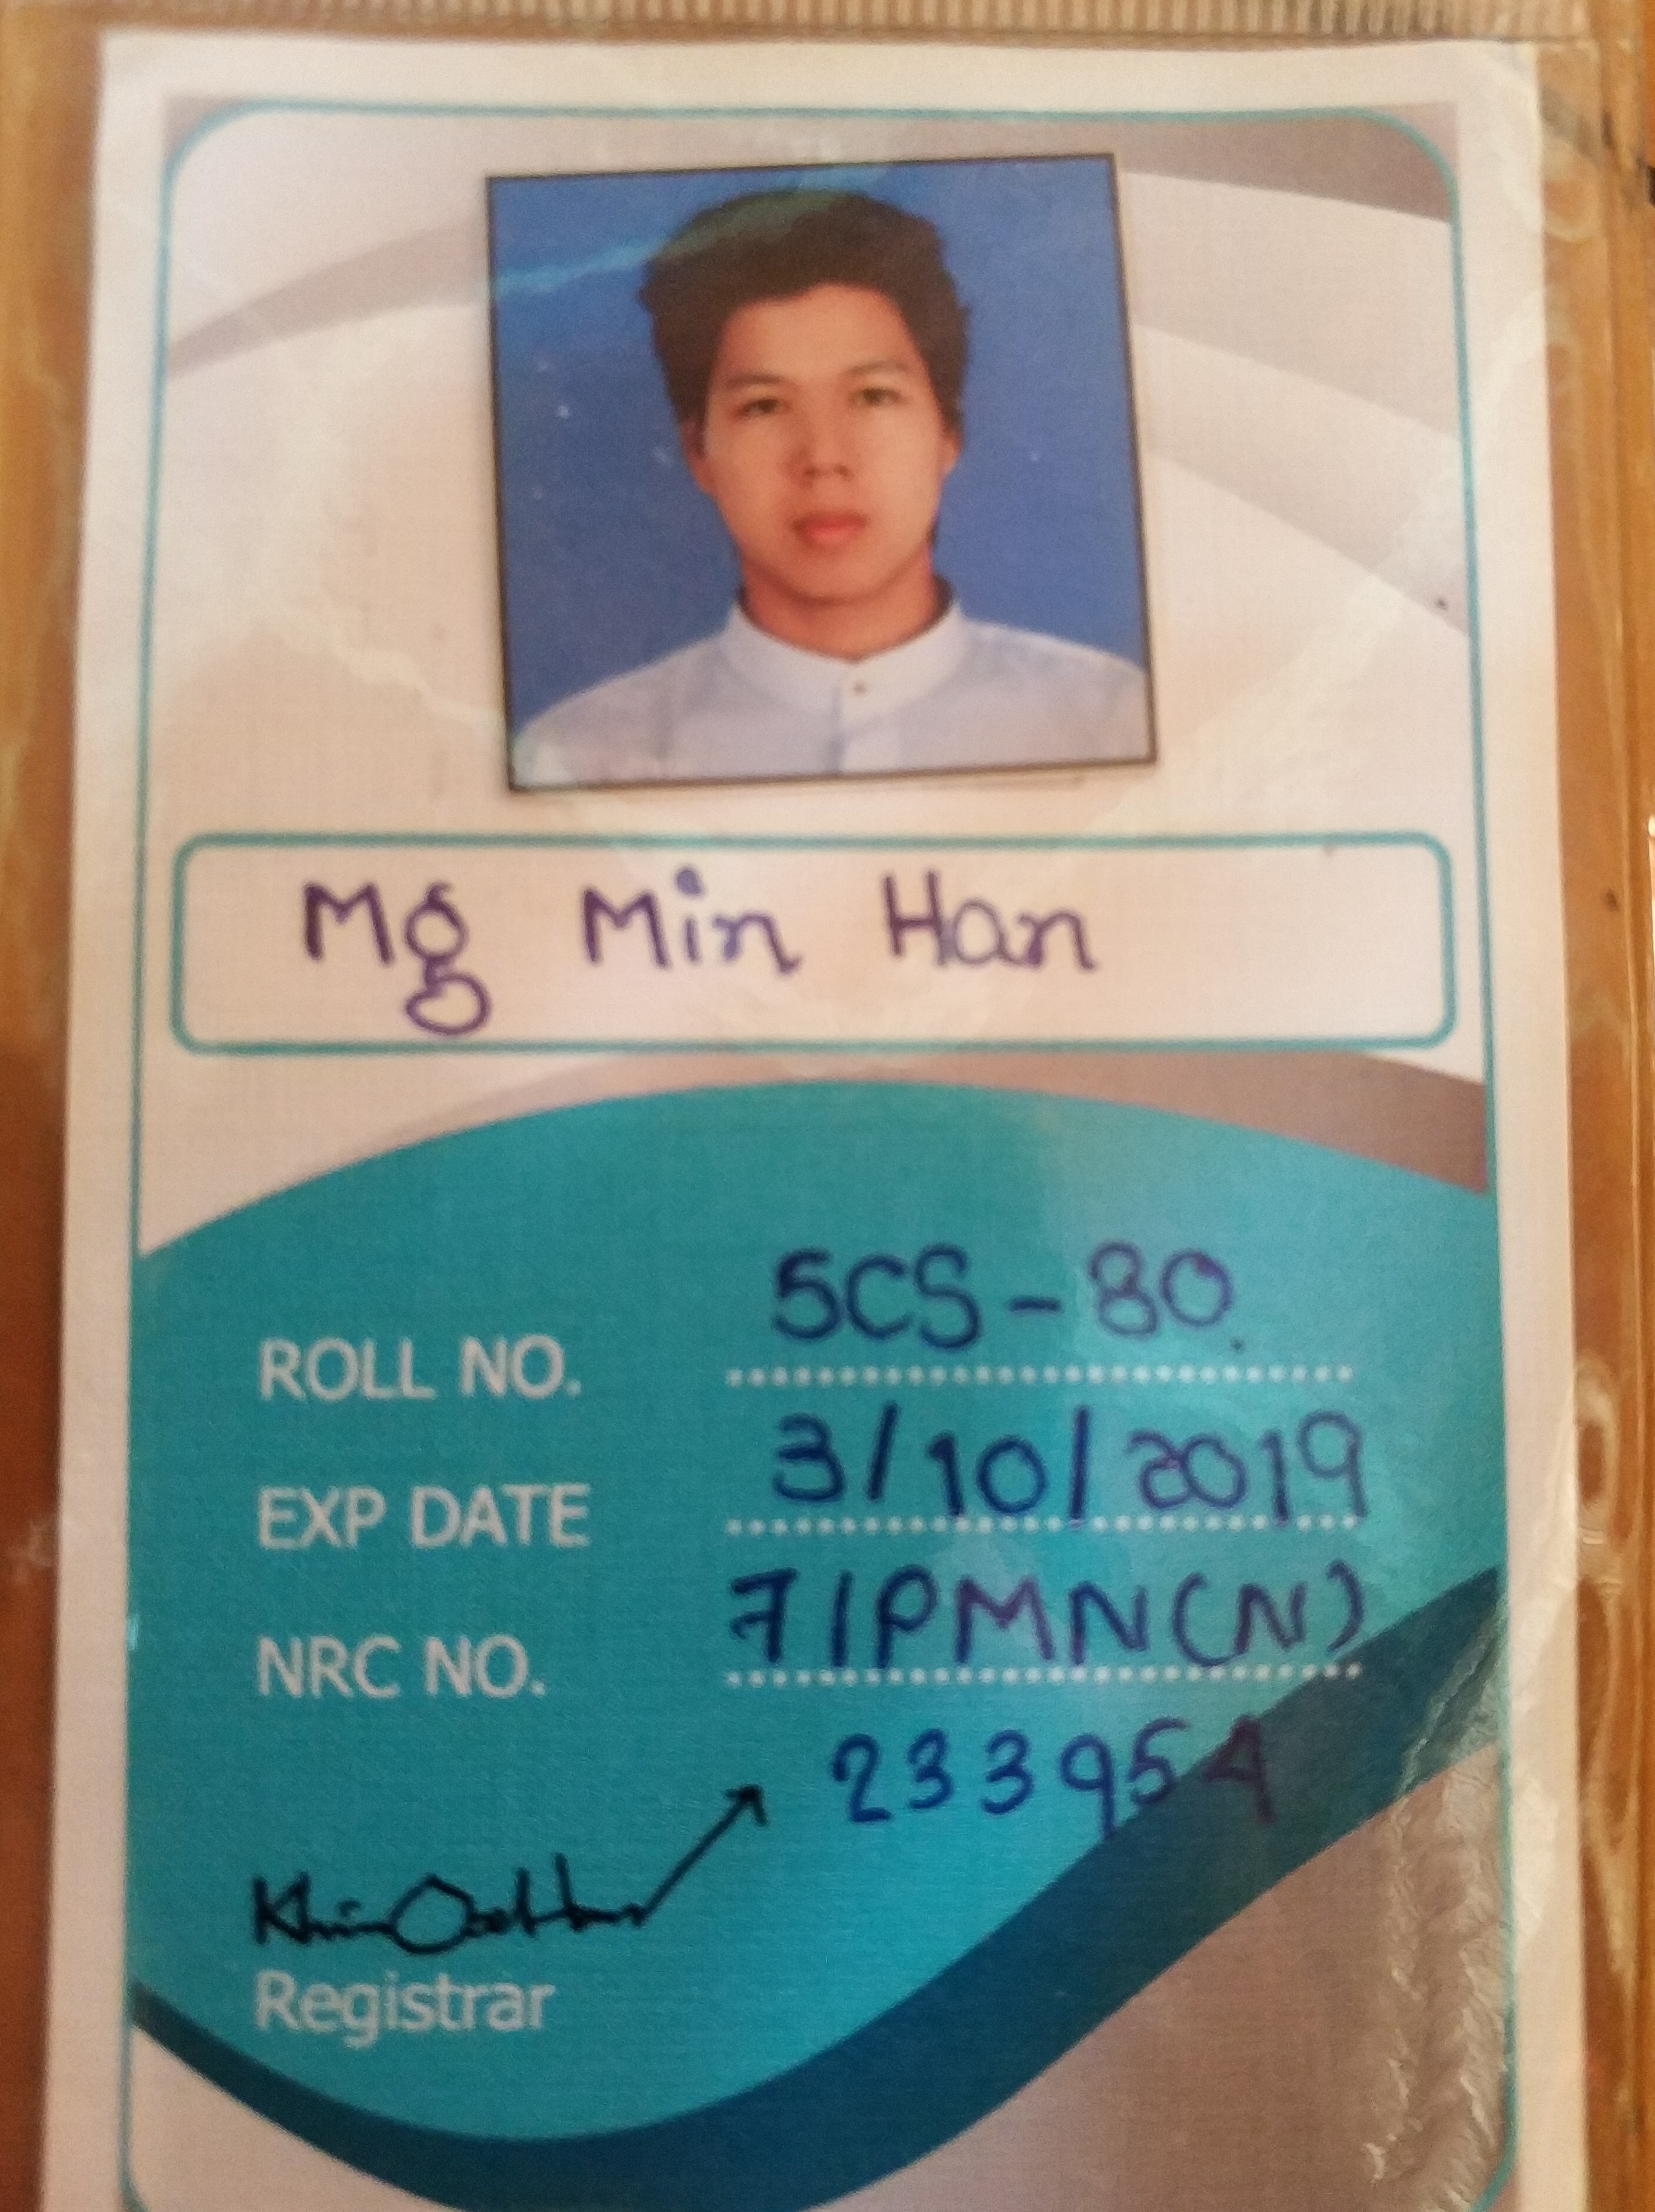 Mg Min Han
ROLL NO. 5CS-80.
EXP DATE 3/10/2019
NRC NO. 7/PMN(N)
233954
Registrar